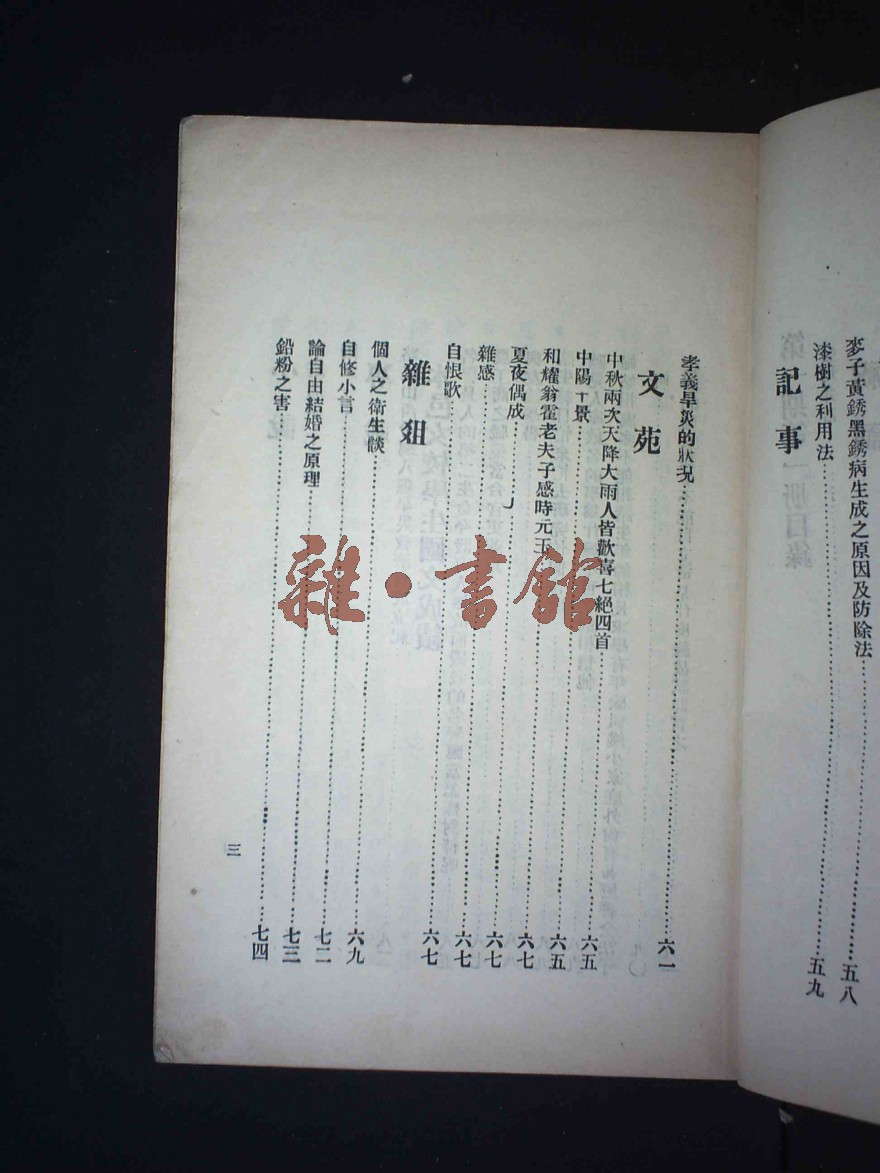 麥子黃銹黑銹病生成之原因及防除法……五八
漆樹之利用法……五九
記事
孝義旱災的狀況……六一
文苑
中秋兩次天降大雨人皆歡喜七絕四首……六五
中陽十景……六五
和耀翁霍老夫子感時元玉……六七
夏夜偶成……六七
雜感……六七
自恨歌……六七
雜爼
個人之衛生談……六九
自修小言……七二
論自由結婚之原理……七三
鉛粉之害……七四
三
雜·書館